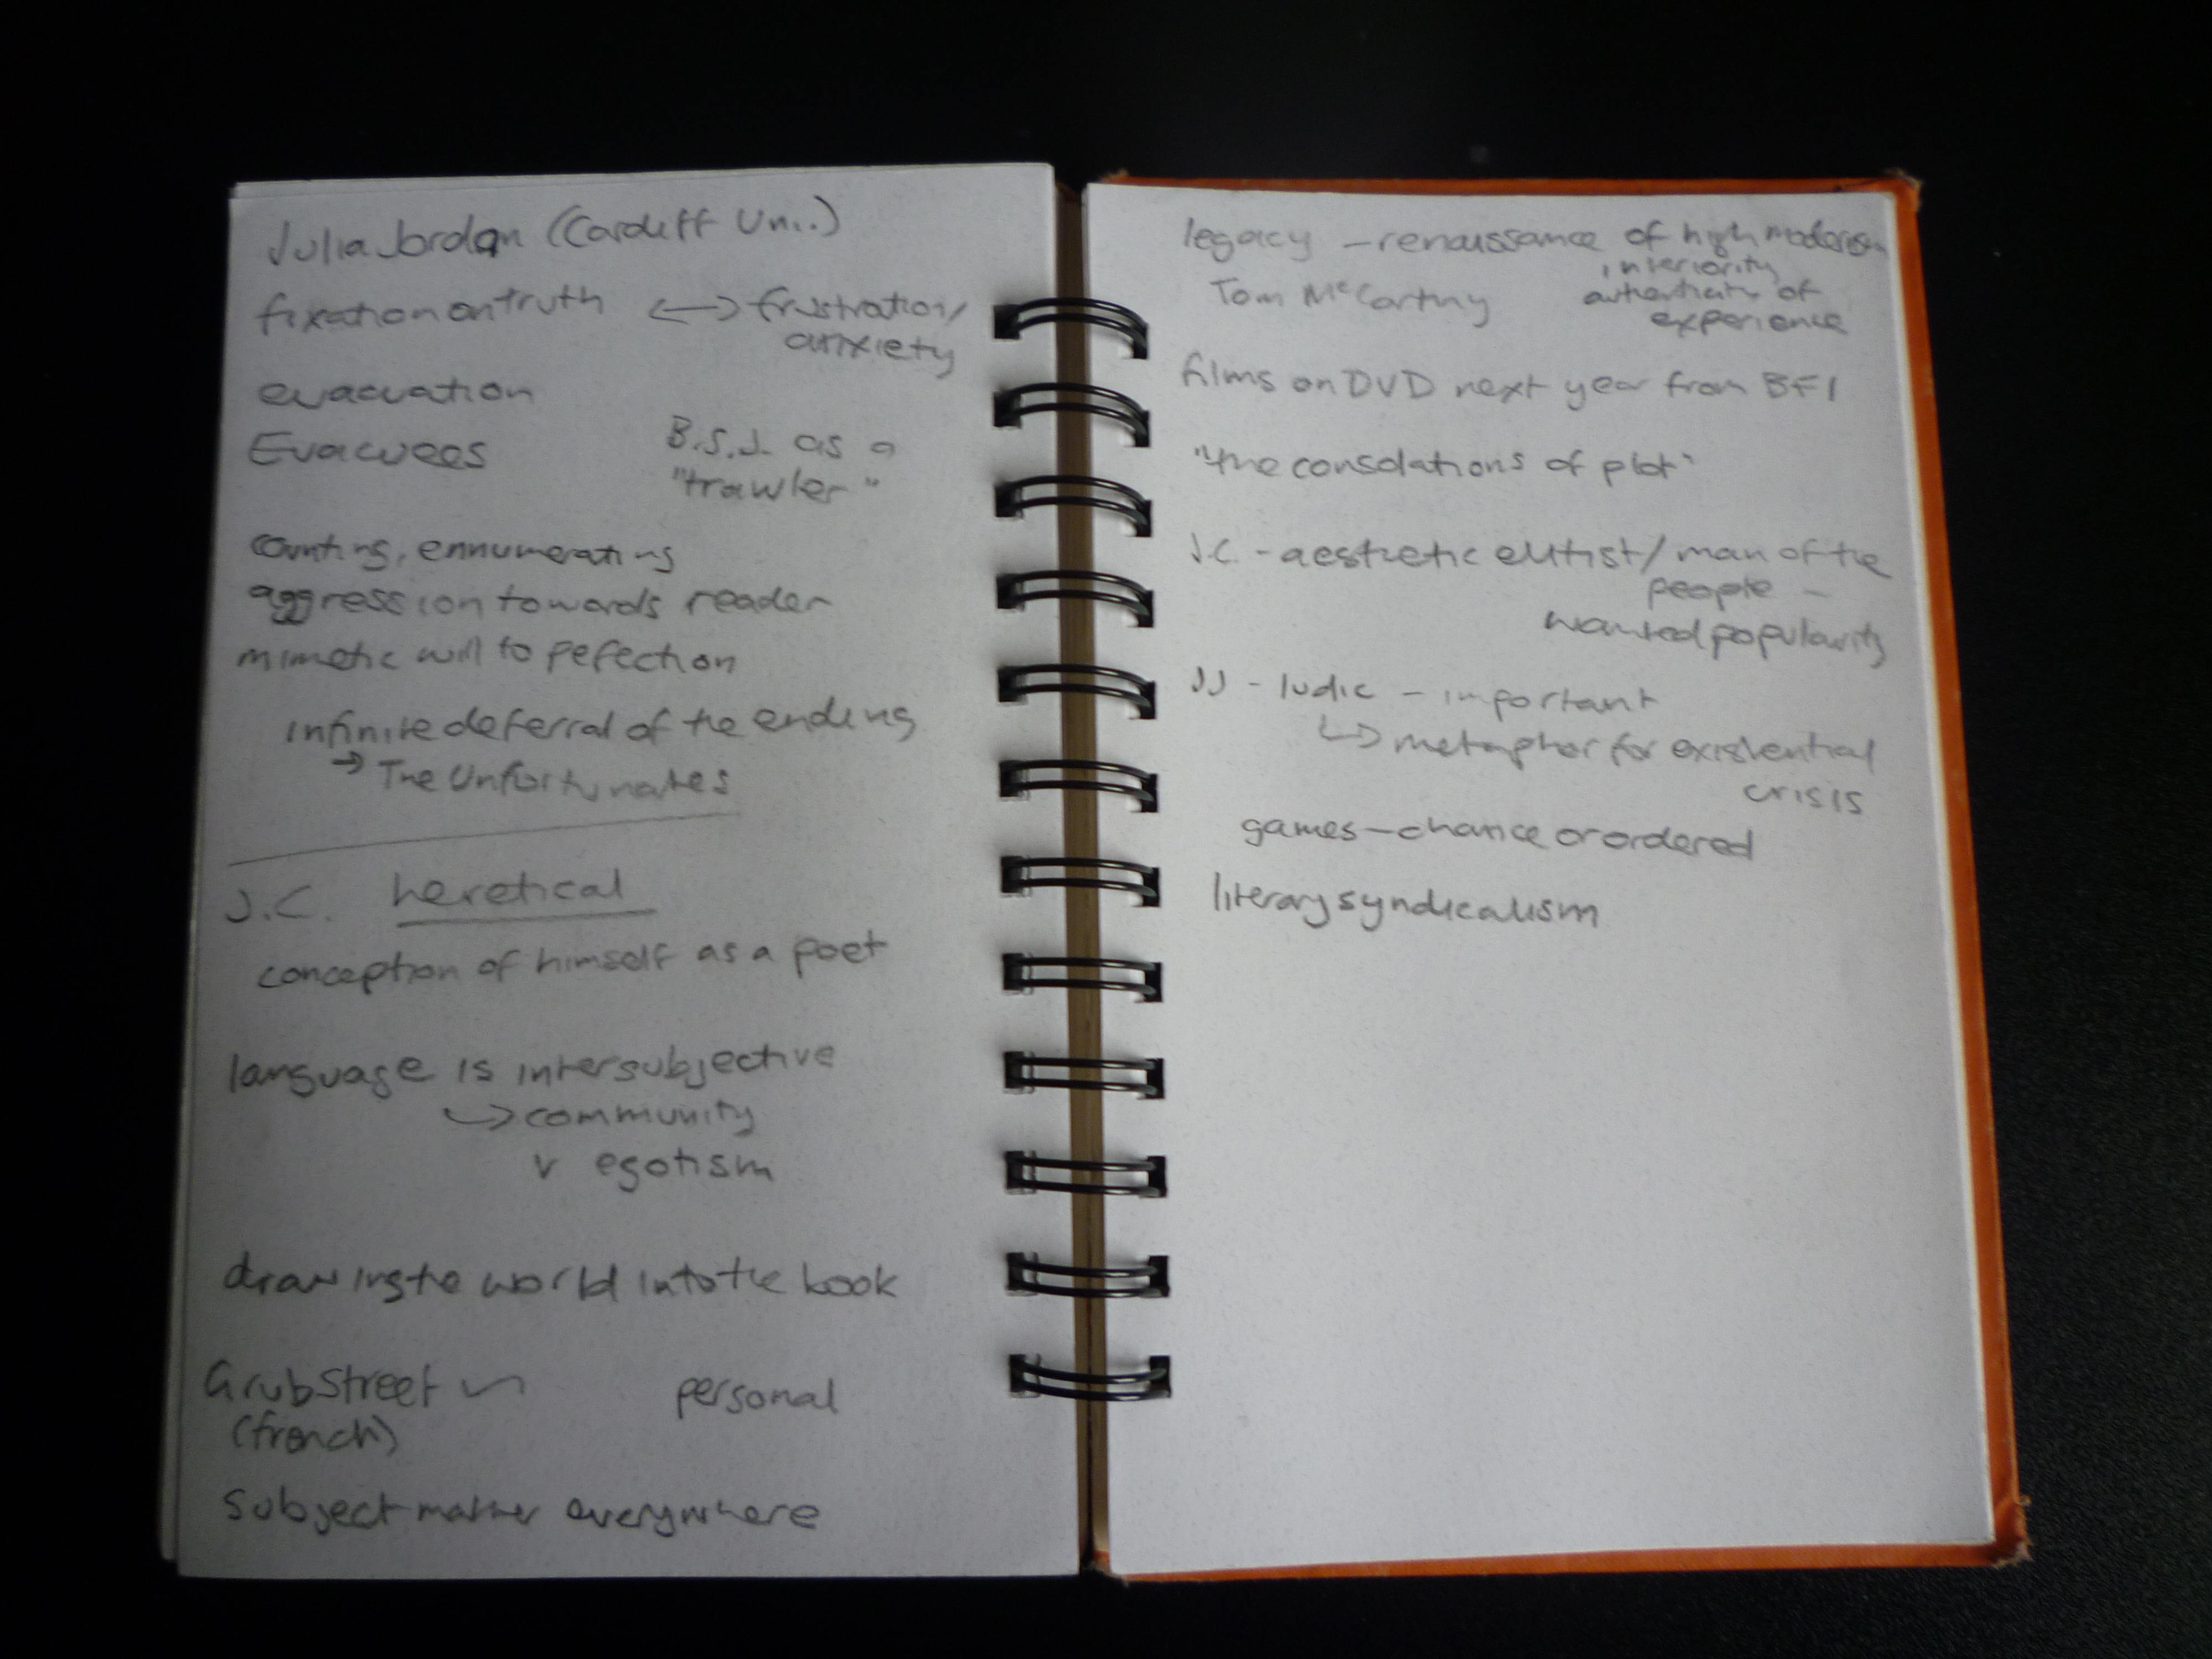 Julia Jordan (Cardiff Uni.)
fixation on truth ↔ frustration/
anxiety
evacuation
Evacuees
B.S.J. as a
"trawler"
counting, ennumerating
aggression towards reader
mimetic will to pefection
infinite deferral of the ending
→ The Unfortunates
J.C. heretical
conception of himself as a poet
language is intersubjective
↳ community
v egotism
drawing the world into the book
Grub Street personal
(french)
subject matter everywhere
legacy - renaissance of high modernism
interiority
Tom McCarthy authenticity of
experience
films on DVD next year from BFI
"the consolations of plot"
J.C. - aesthetic elitist/man of the
people -
wanted popularity
JJ - ludic - important
↳ metaphor for existential
crisis
games - chance or ordered
literary syndicalism